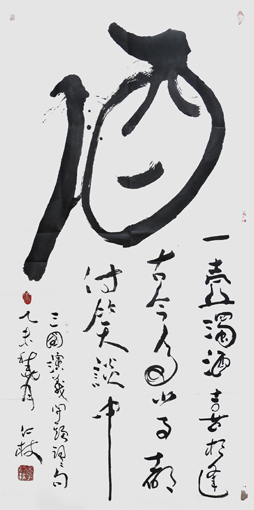 酒
一壺濁酒喜相逢
古今多少事都
付笑談中
三國演義開頭詞句
乙未 月